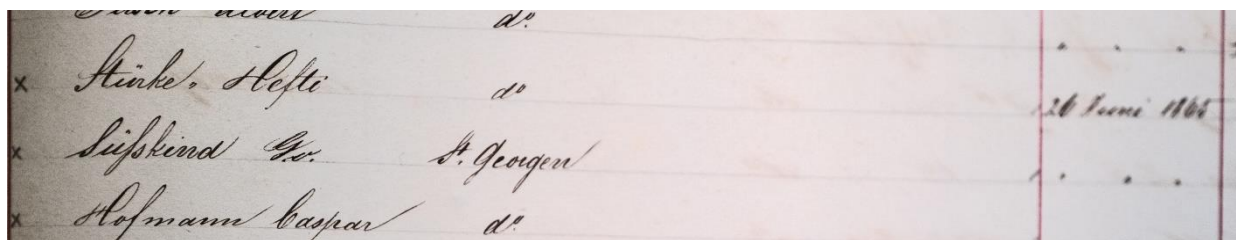 Albert do.
x Stürke-Hefti do 26 Juni 1865
x Süfskind Gv. St. Georgen " " "
x Hofmann Caspar do.